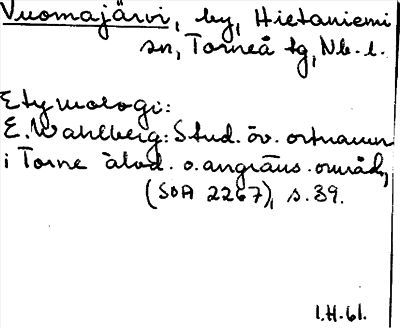 Vuomajärvi, by, Hietaniemi
sn, Torneå tg, Nb. l.
Etymologi:
E. Wahlberg: Stud. öv. ortnamn
i Torne älvd. o. angräns. områd,
(SOA 2267), s. 39.
1.H.61.